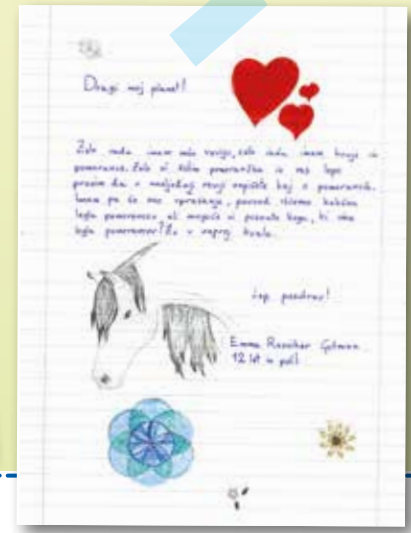 Dragi moj planet!
Zelo rada imam vašo revijo, zelo rada imam konje in
pomerance. Zelo si želim pomerančka in vas lepo
prosim da v naslednji reviji napišete kaj o pomerancih.
Imam pa še eno vprašanje, povsod iščemo kakšno
leglo pomerancev, ali mogoče vi poznate koga, ki ima
leglo pomerancev? Že v naprej hvala.
Lep pozdrav!
Emma
12 let in pol!